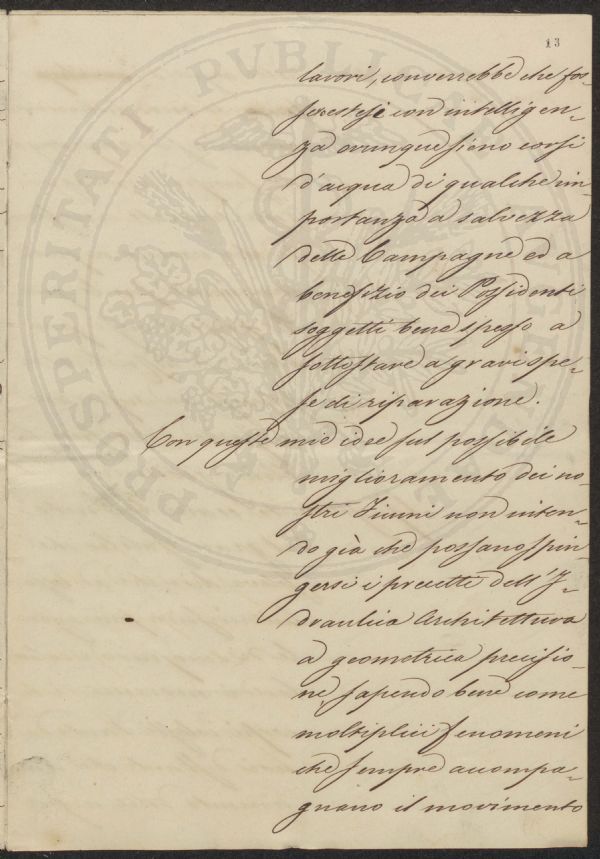 13
lavori, converrebbe che fos-
sero estesi con intelligen-
za ovunque sieno corsi
d'acqua di qualche im-
portanza a salvezza
delle Campagne ed a
benefizio dei Possidenti
soggetti bene spesso a
sottostare a gravi spe-
se di riparazione.
Con queste mie idee sul possibile
miglioramento dei no-
stri Fiumi non inten-
do già che possano spin-
gersi i precetti dell'I-
draulica Architettura
a geometrica precisio-
ne, sapendo bene come
moltiplici fenomeni
che sempre accompa-
gnano il movimento
PROSPERITATI PVBLICAE